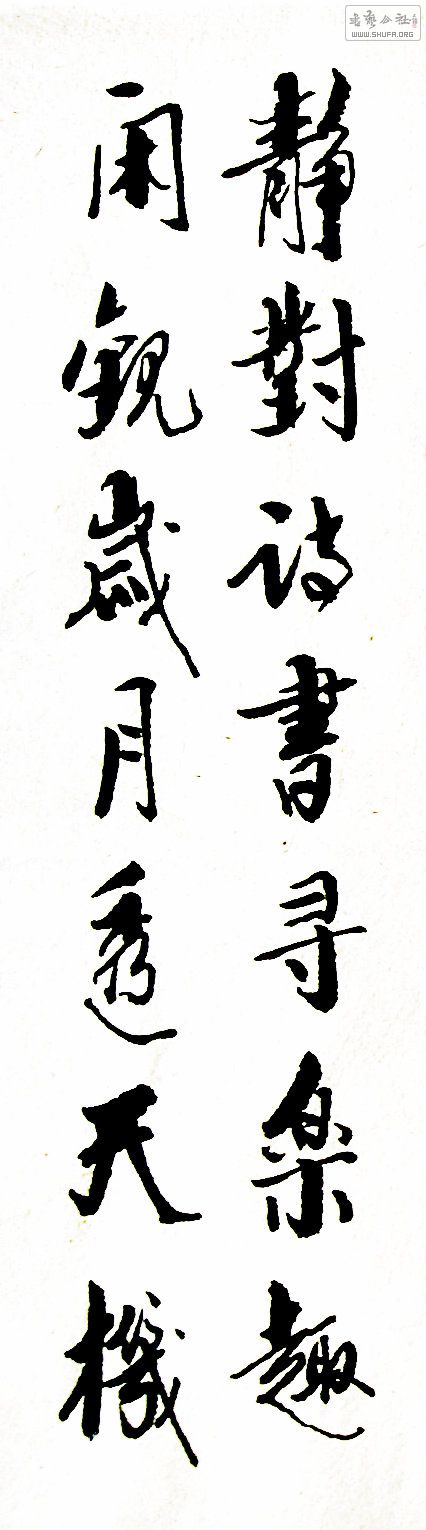 静對诗書寻樂趣
闲觀歲月透天機
書藝公社
WWW.SHUFA.ORG